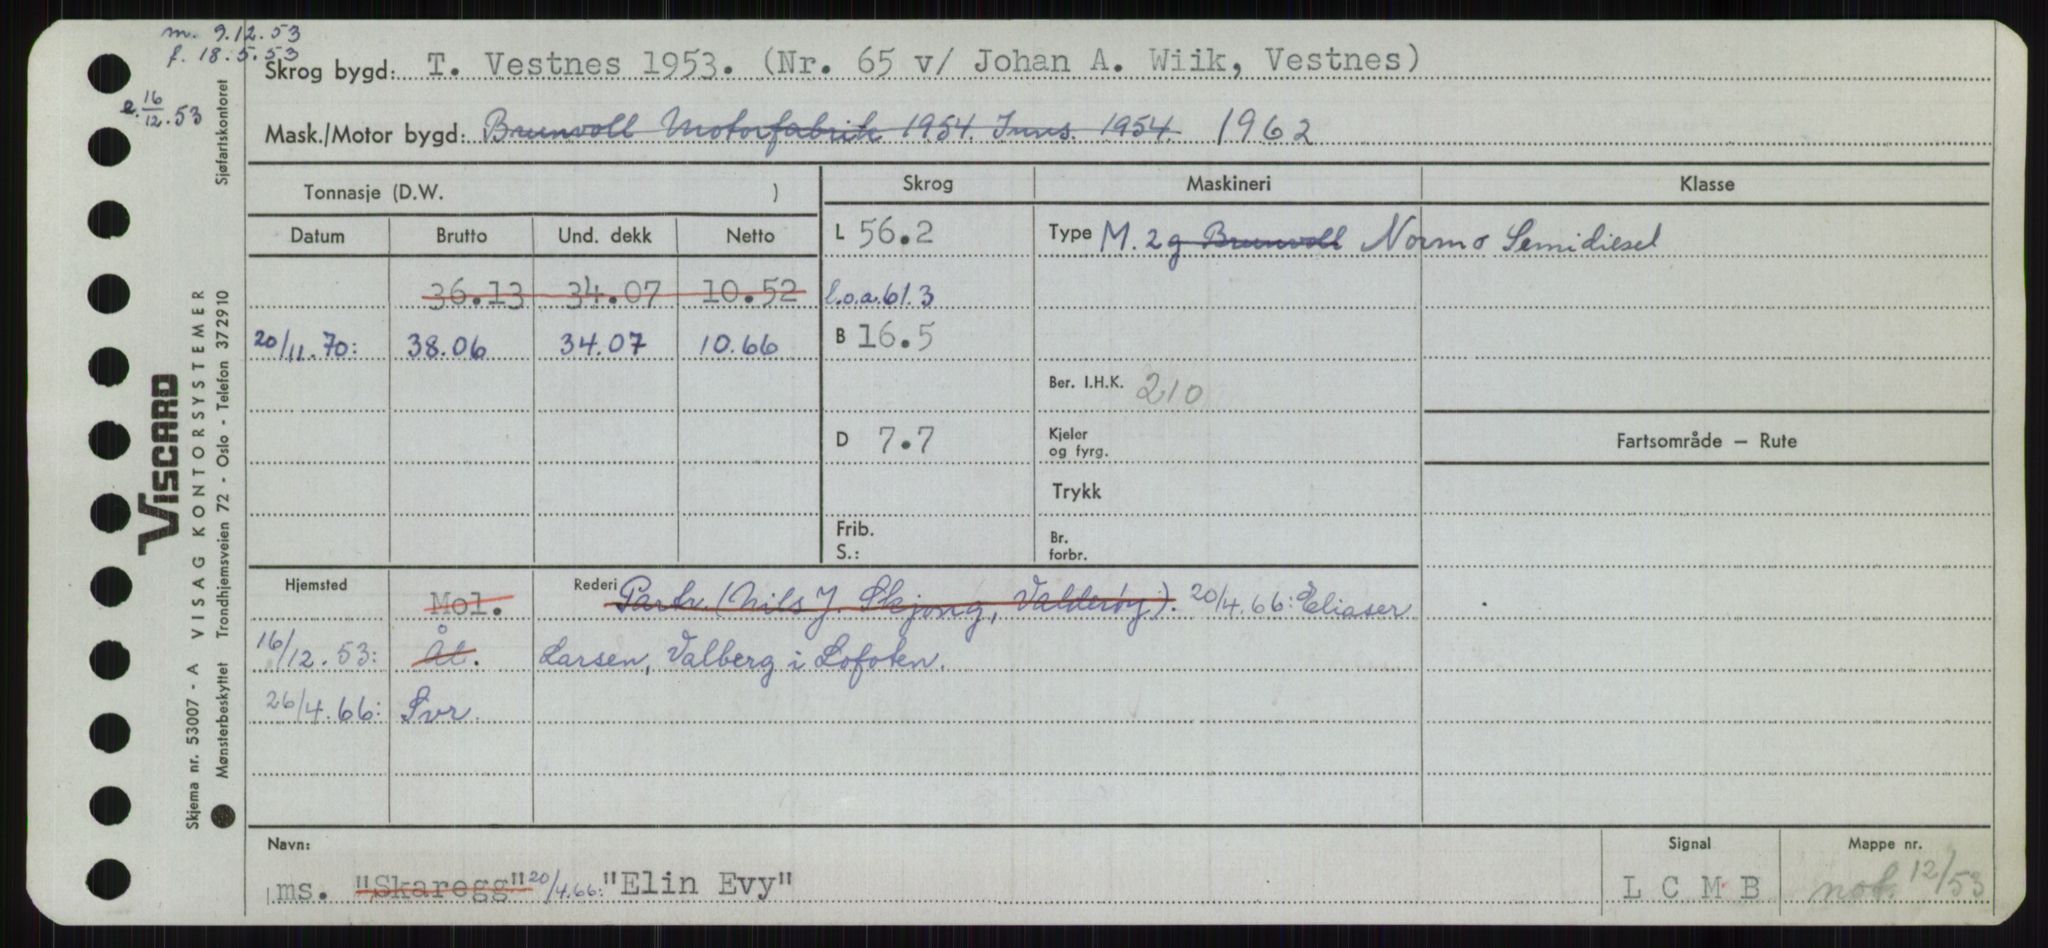 m. 9.12.53
f. 18.5.53
e. 16/12.53
Skrog bygd: T. Vestnes 1953. (Nr. 65 v/ Johan A. Wiik, Vestnes)
Mask./Motor bygd: Brunvoll Motorfabrik 1954. Inns. 1954. 1962
Tonnasje (D.W. )
Skrog Maskineri Klasse
Datum Brutto Und. dekk Netto
L 56.2
Type M. 2g Brunvoll Normo Semidiesel
36.13 34.07 10.52
l.o.a. 61.3
20/11.70: 38.06 34.07 10.66
B 16.5
Ber. I.H.K. 210
D 7.7
Kjeler
og fyrg.
Fartsområde — Rute
Trykk
Frib.
S.:
Br.
forbr.
Hjemsted Mol. Rederi Partr. (Nils J. Skjong, Valderøy). 20/4.66: Eliaser
16/12.53: Ål. Larsen, Valberg i Lofoten.
26/4.66: Svr.
Navn: Signal Mappe nr.
ms. "Skaregg" 20/4.66: "Elin Evy" L C M B not. 12/53
Skjema nr. 53007 - A VISAG KONTORSYSTEMER
Mønsterbeskyttet Trondhjemsveien 72 - Oslo - Telefon 372910 Sjøfartskontoret
VISCARD